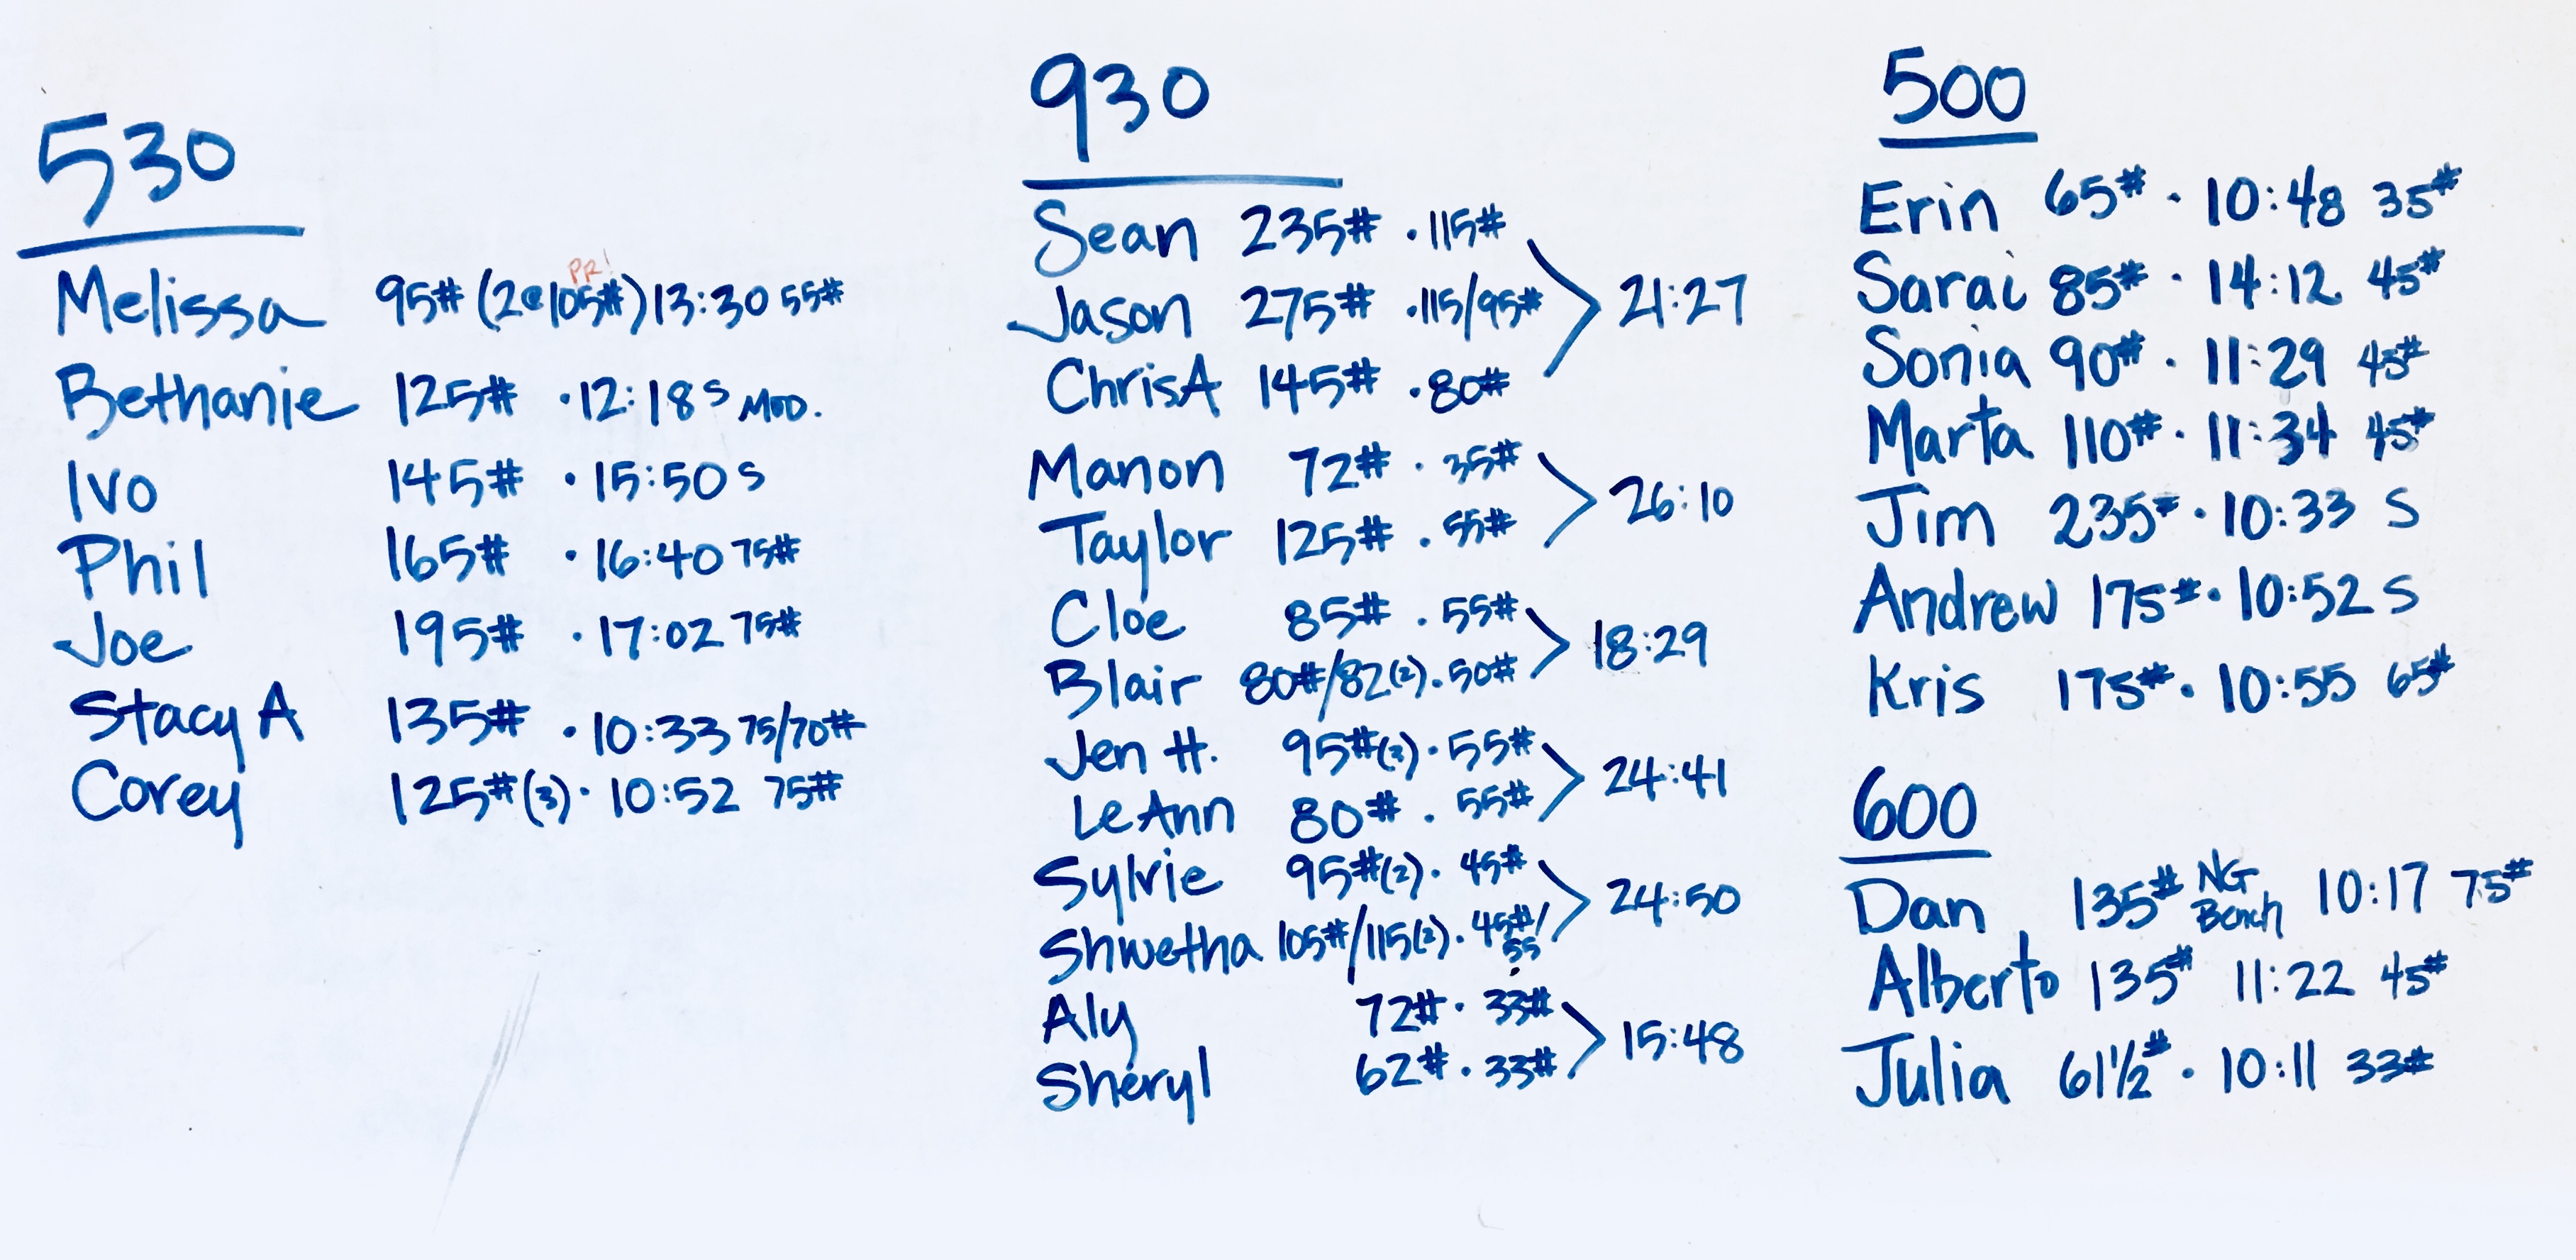 530
Melissa 95# (2@105#) PR! 13:30 55#
Bethanie 125# · 12:18 s MOD.
Ivo 145# · 15:50 s
Phil 165# · 16:40 75#
Joe 195# · 17:02 75#
Stacy A 135# · 10:33 75/70#
Corey 125# (3) · 10:52 75#
930
Sean 235# · 115#
Jason 275# · 115/95#
21:27
Chris A 145# · 80#
Manon 72# · 35#
26:10
Taylor 125# · 55#
Cloe 85# · 55#
18:29
Blair 80#/82(2) · 50#
Jen H. 95#(3) · 55#
24:41
LeAnn 80# · 55#
Sylvie 95#(2) · 45#
24:50
Shwetha 105#/115(2) · 45#/55
Aly 72# · 33#
15:48
Sheryl 62# · 33#
500
Erin 65# · 10:48 35#
Sarai 85# · 14:12 45#
Sonia 90# · 11:29 45#
Marta 110# · 11:34 45#
Jim 235# · 10:33 S
Andrew 175# · 10:52 S
Kris 175# · 10:55 65#
600
Dan 135# NG Bench 10:17 75#
Alberto 135# 11:22 45#
Julia 61 1/2# · 10:11 33#